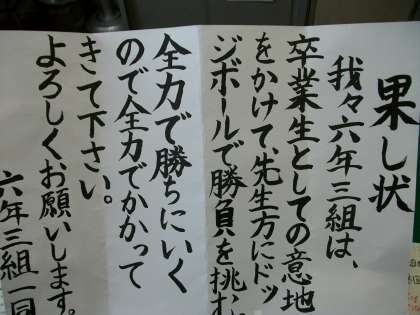 果し状
我々六年三組は、
卒業生としての意地
をかけて、先生方にドッ
ジボールで勝負を挑む。
全力で勝ちにいく
ので全力でかかって
きて下さい。
よろしくお願いします。
六年三組一同